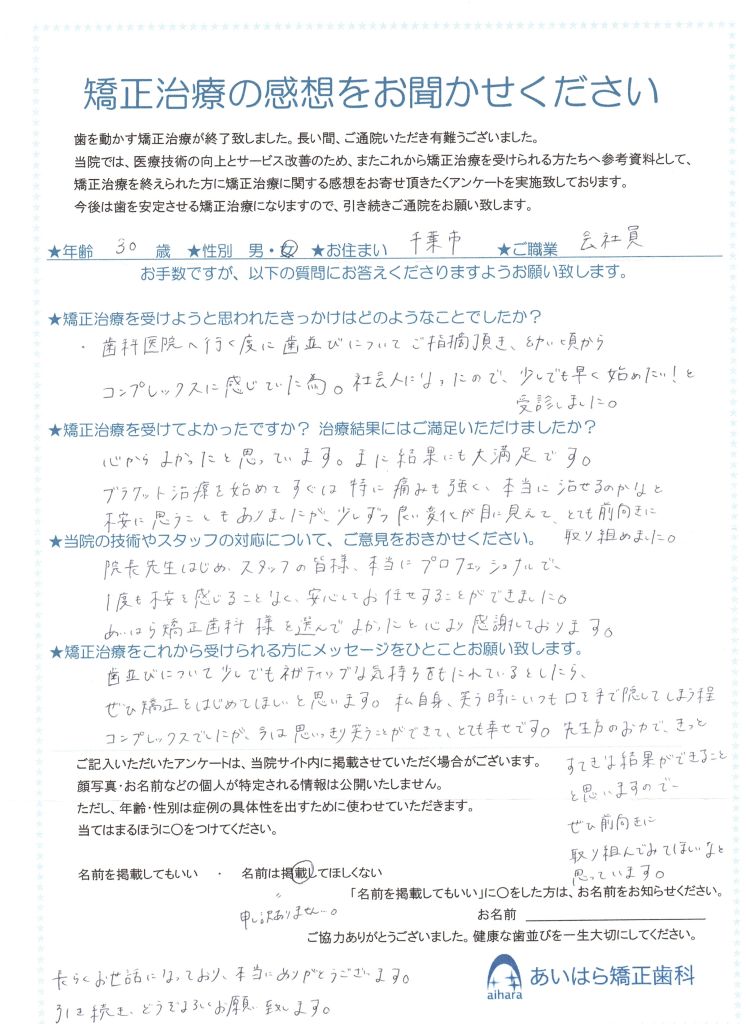 矯正治療の感想をお聞かせください
歯を動かす矯正治療が終了致しました。長い間、ご通院いただき有難うございました。
当院では、医療技術の向上とサービス改善のため、またこれから矯正治療を受けられる方たちへ参考資料として、
矯正治療を終えられた方に矯正治療に関する感想をお寄せ頂きたくアンケートを実施致しております。
今後は歯を安定させる矯正治療になりますので、引き続きご通院をお願い致します。
★年齢 30 歳 ★性別 男・女 ★お住まい 千葉市 ★ご職業 会社員
お手数ですが、以下の質問にお答えくださりますようお願い致します。
★矯正治療を受けようと思われたきっかけはどのようなことでしたか？
・歯科医院へ行く度に歯並びについてご指摘頂き、幼い頃から
コンプレックスに感じていた為。社会人になったので、少しでも早く始めたい！と
受診しました。
★矯正治療を受けてよかったですか？ 治療結果にはご満足いただけましたか？
心からよかったと思っています。また結果にも大満足です。
ブラケット治療を始めてすぐは特に痛みも強く、本当に治せるのかなと
不安に思うこともありましたが、少しずつ良い変化が目に見えて、とても前向きに
取り組めました。
★当院の技術やスタッフの対応について、ご意見をおきかせください。
院長先生はじめ、スタッフの皆様、本当にプロフェッショナルで、
1度も不安を感じることなく、安心してお任せすることができました。
あいはら矯正歯科様を選んでよかったと心より感謝しております。
★矯正治療をこれから受けられる方にメッセージをひとことお願い致します。
歯並びについて少しでもネガティブな気持ちをもたれているとしたら、
ぜひ矯正をはじめてほしいと思います。私自身、笑う時にいつも口を手で隠してしまう程
コンプレックスでしたが、今は思いっきり笑うことができて、とても幸せです。先生方のお力で、きっと
すてきな結果ができること
と思いますので
ぜひ前向きに
取り組んでみてほしいなと
思っています。
ご記入いただいたアンケートは、当院サイト内に掲載させていただく場合がございます。
顔写真・お名前などの個人が特定される情報は公開いたしません。
ただし、年齢・性別は症例の具体性を出すために使わせていただきます。
当てはまるほうに○をつけてください。
名前を掲載してもいい ・ 名前は掲載してほしくない
申し訳ありません…。
「名前を掲載してもいい」に○をした方は、お名前をお知らせください。
お名前
ご協力ありがとうございました。健康な歯並びを一生大切にしてください。
長らくお世話になっており、本当にありがとうございます。
引き続き、どうぞよろしくお願い致します。
aihara あいはら矯正歯科